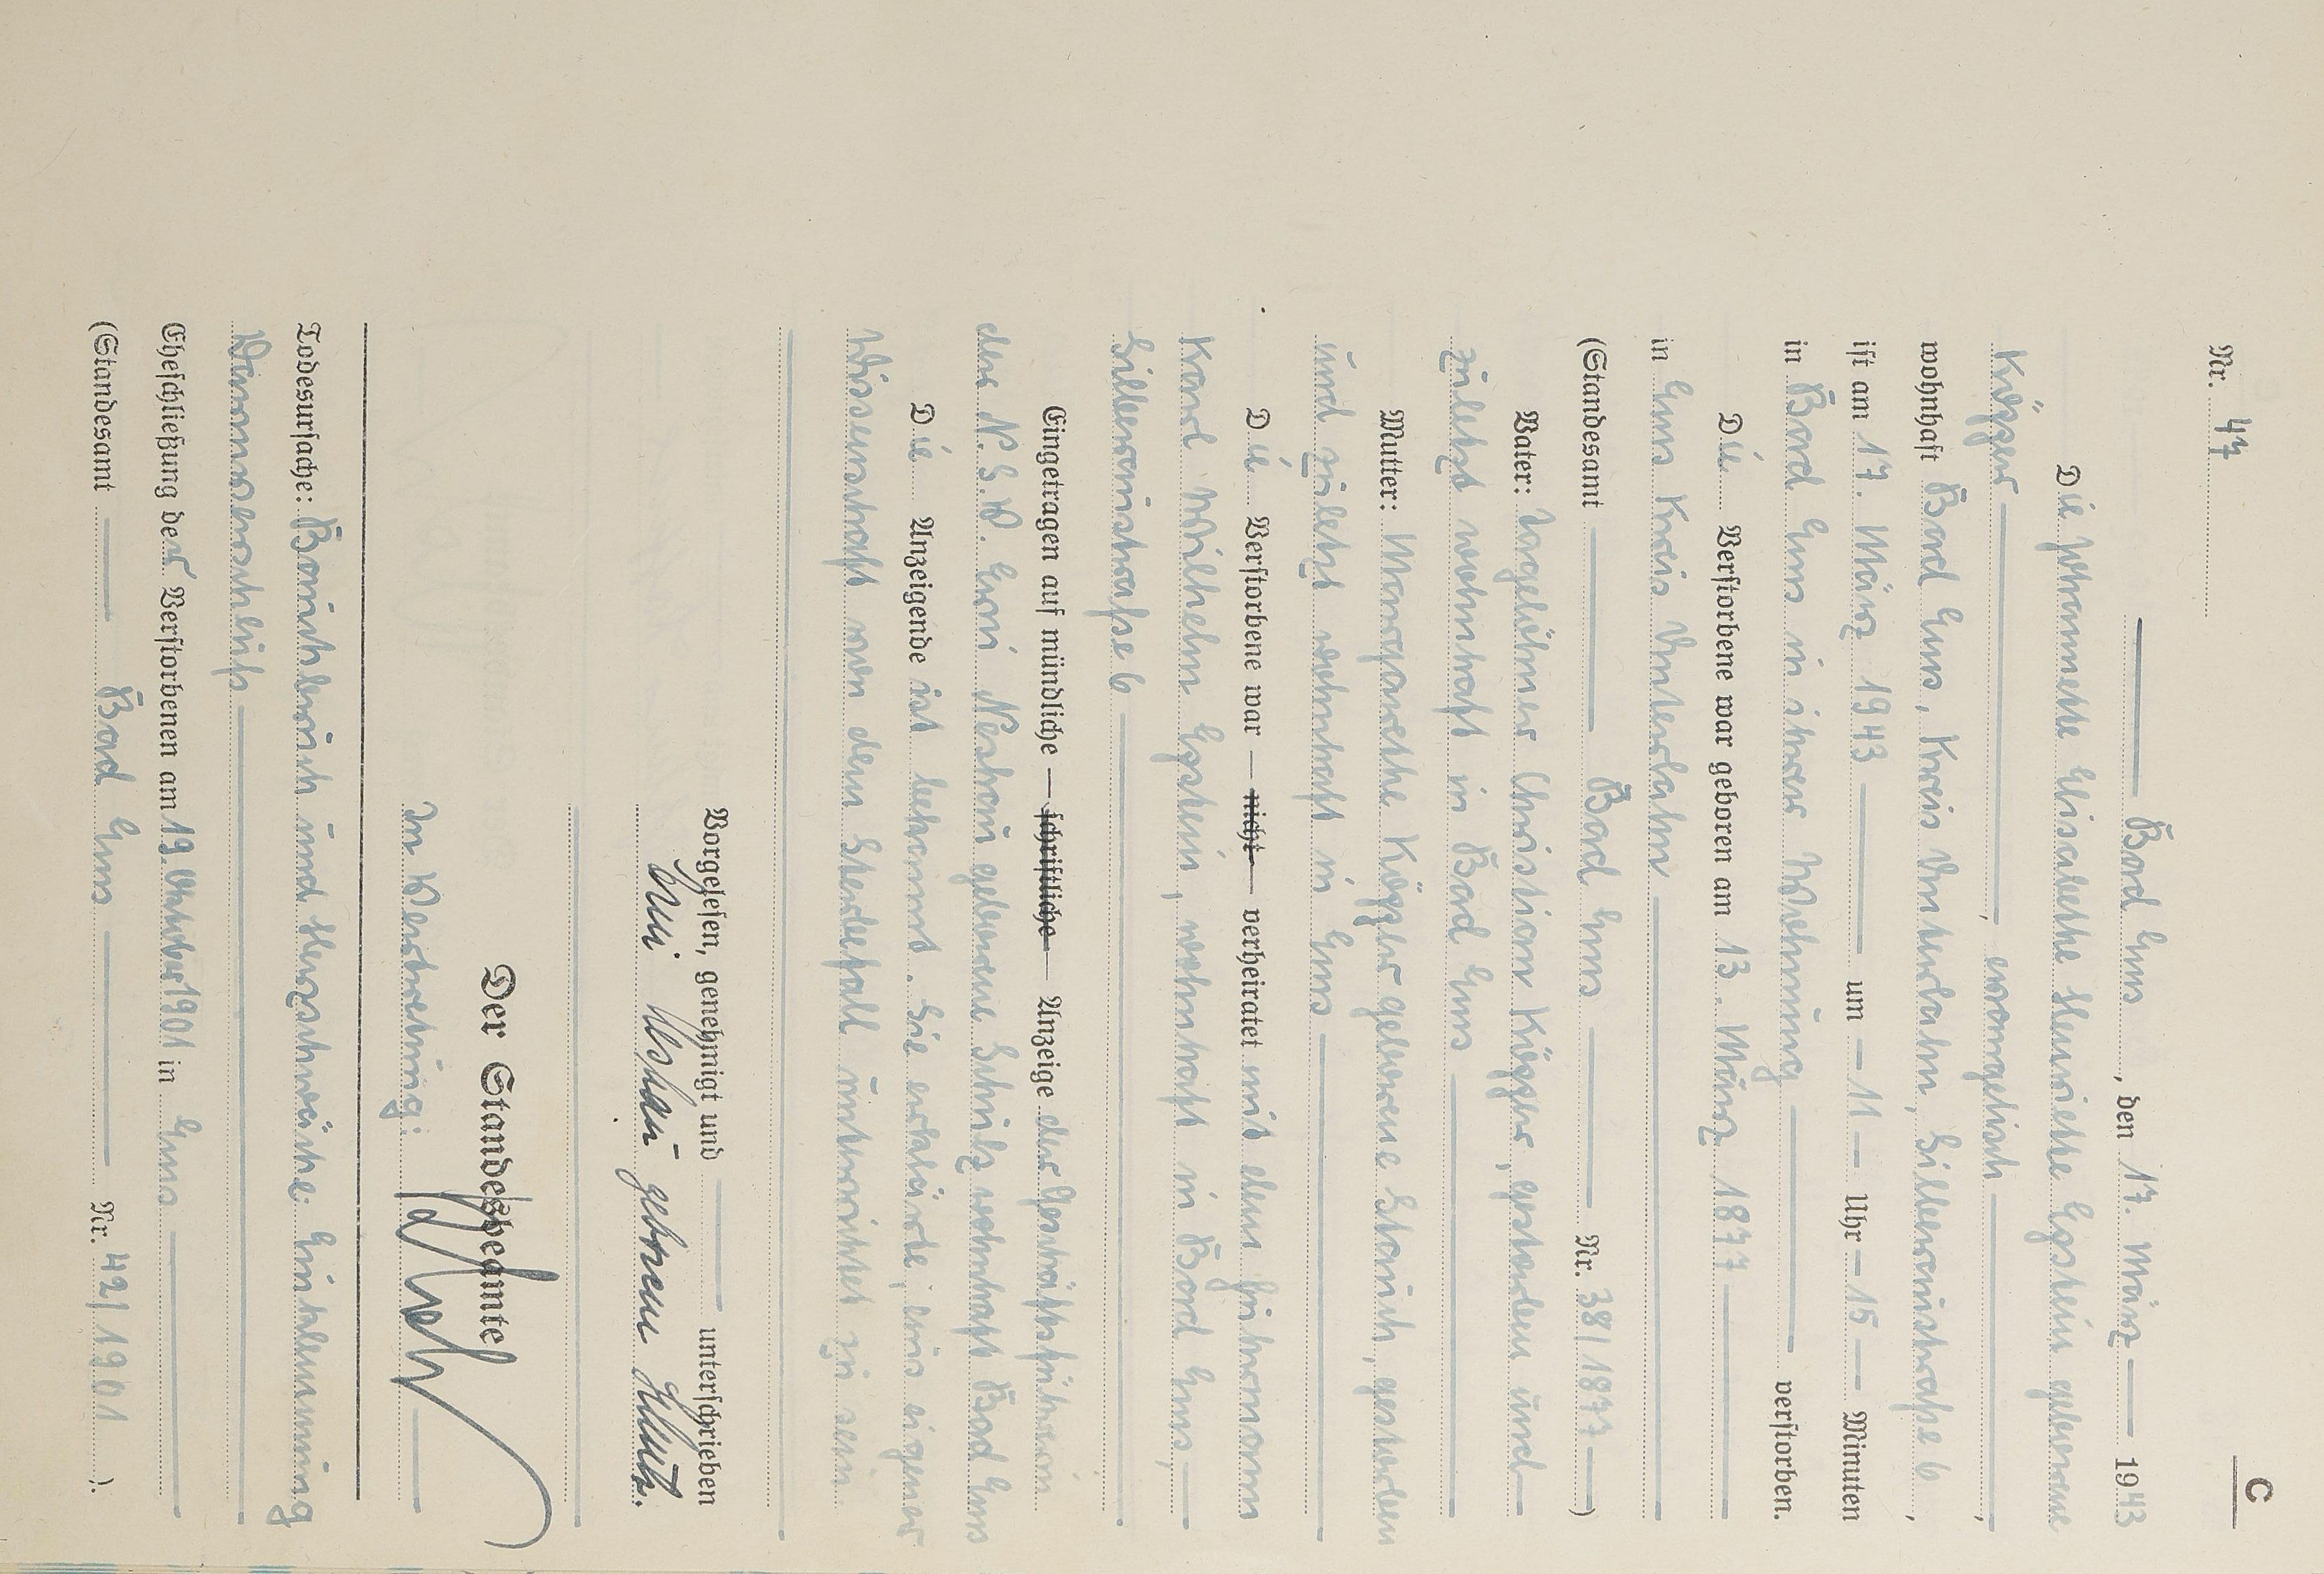 C
Nr. 47
Bad Ems, den 17. März 1943
Die Johannette Elisabethe Henriette Epstein geborene
Klöppel, evangelisch,
wohnhaft Bad Ems, Kreis Unterlahn, Silleraustraße 6,
ist am 17. März 1943 um 11 Uhr 15 Minuten
in Bad Ems in ihrer Wohnung verstorben.
Die Verstorbene war geboren am 13. März 1877
in Ems Kreis Unterlahn
(Standesamt Bad Ems Nr. 38/1877)
Vater: Tagelöhner Christian, gestorben und
zuletzt wohnhaft in Bad Ems
Mutter: Margarethe geborene, gestorben
und zuletzt wohnhaft in Ems
Die Verstorbene war — nicht — verheiratet mit dem Fuhrmann
Karl Wilhelm Epstein, wohnhaft in Bad Ems,
Silleraustraße 6
Eingetragen auf mündliche — schriftliche — Anzeige der Geschäftsführerin
der N.S.V. geborene wohnhaft Bad Ems
Die Anzeigende ist bekannt. Sie erklärte, aus eigener
Wissenschaft von dem Sterbefall unterrichtet zu sein.
Vorgelesen, genehmigt und unterschrieben
geborene
Der Standesbeamte
In Vertretung:
Todesursache: Bauchbruch und Herzschwäche Einklemmung
Darmverschluß
Eheschließung der Verstorbenen am 19. Oktober 1901 in Ems
(Standesamt Bad Ems Nr. 42/1901).